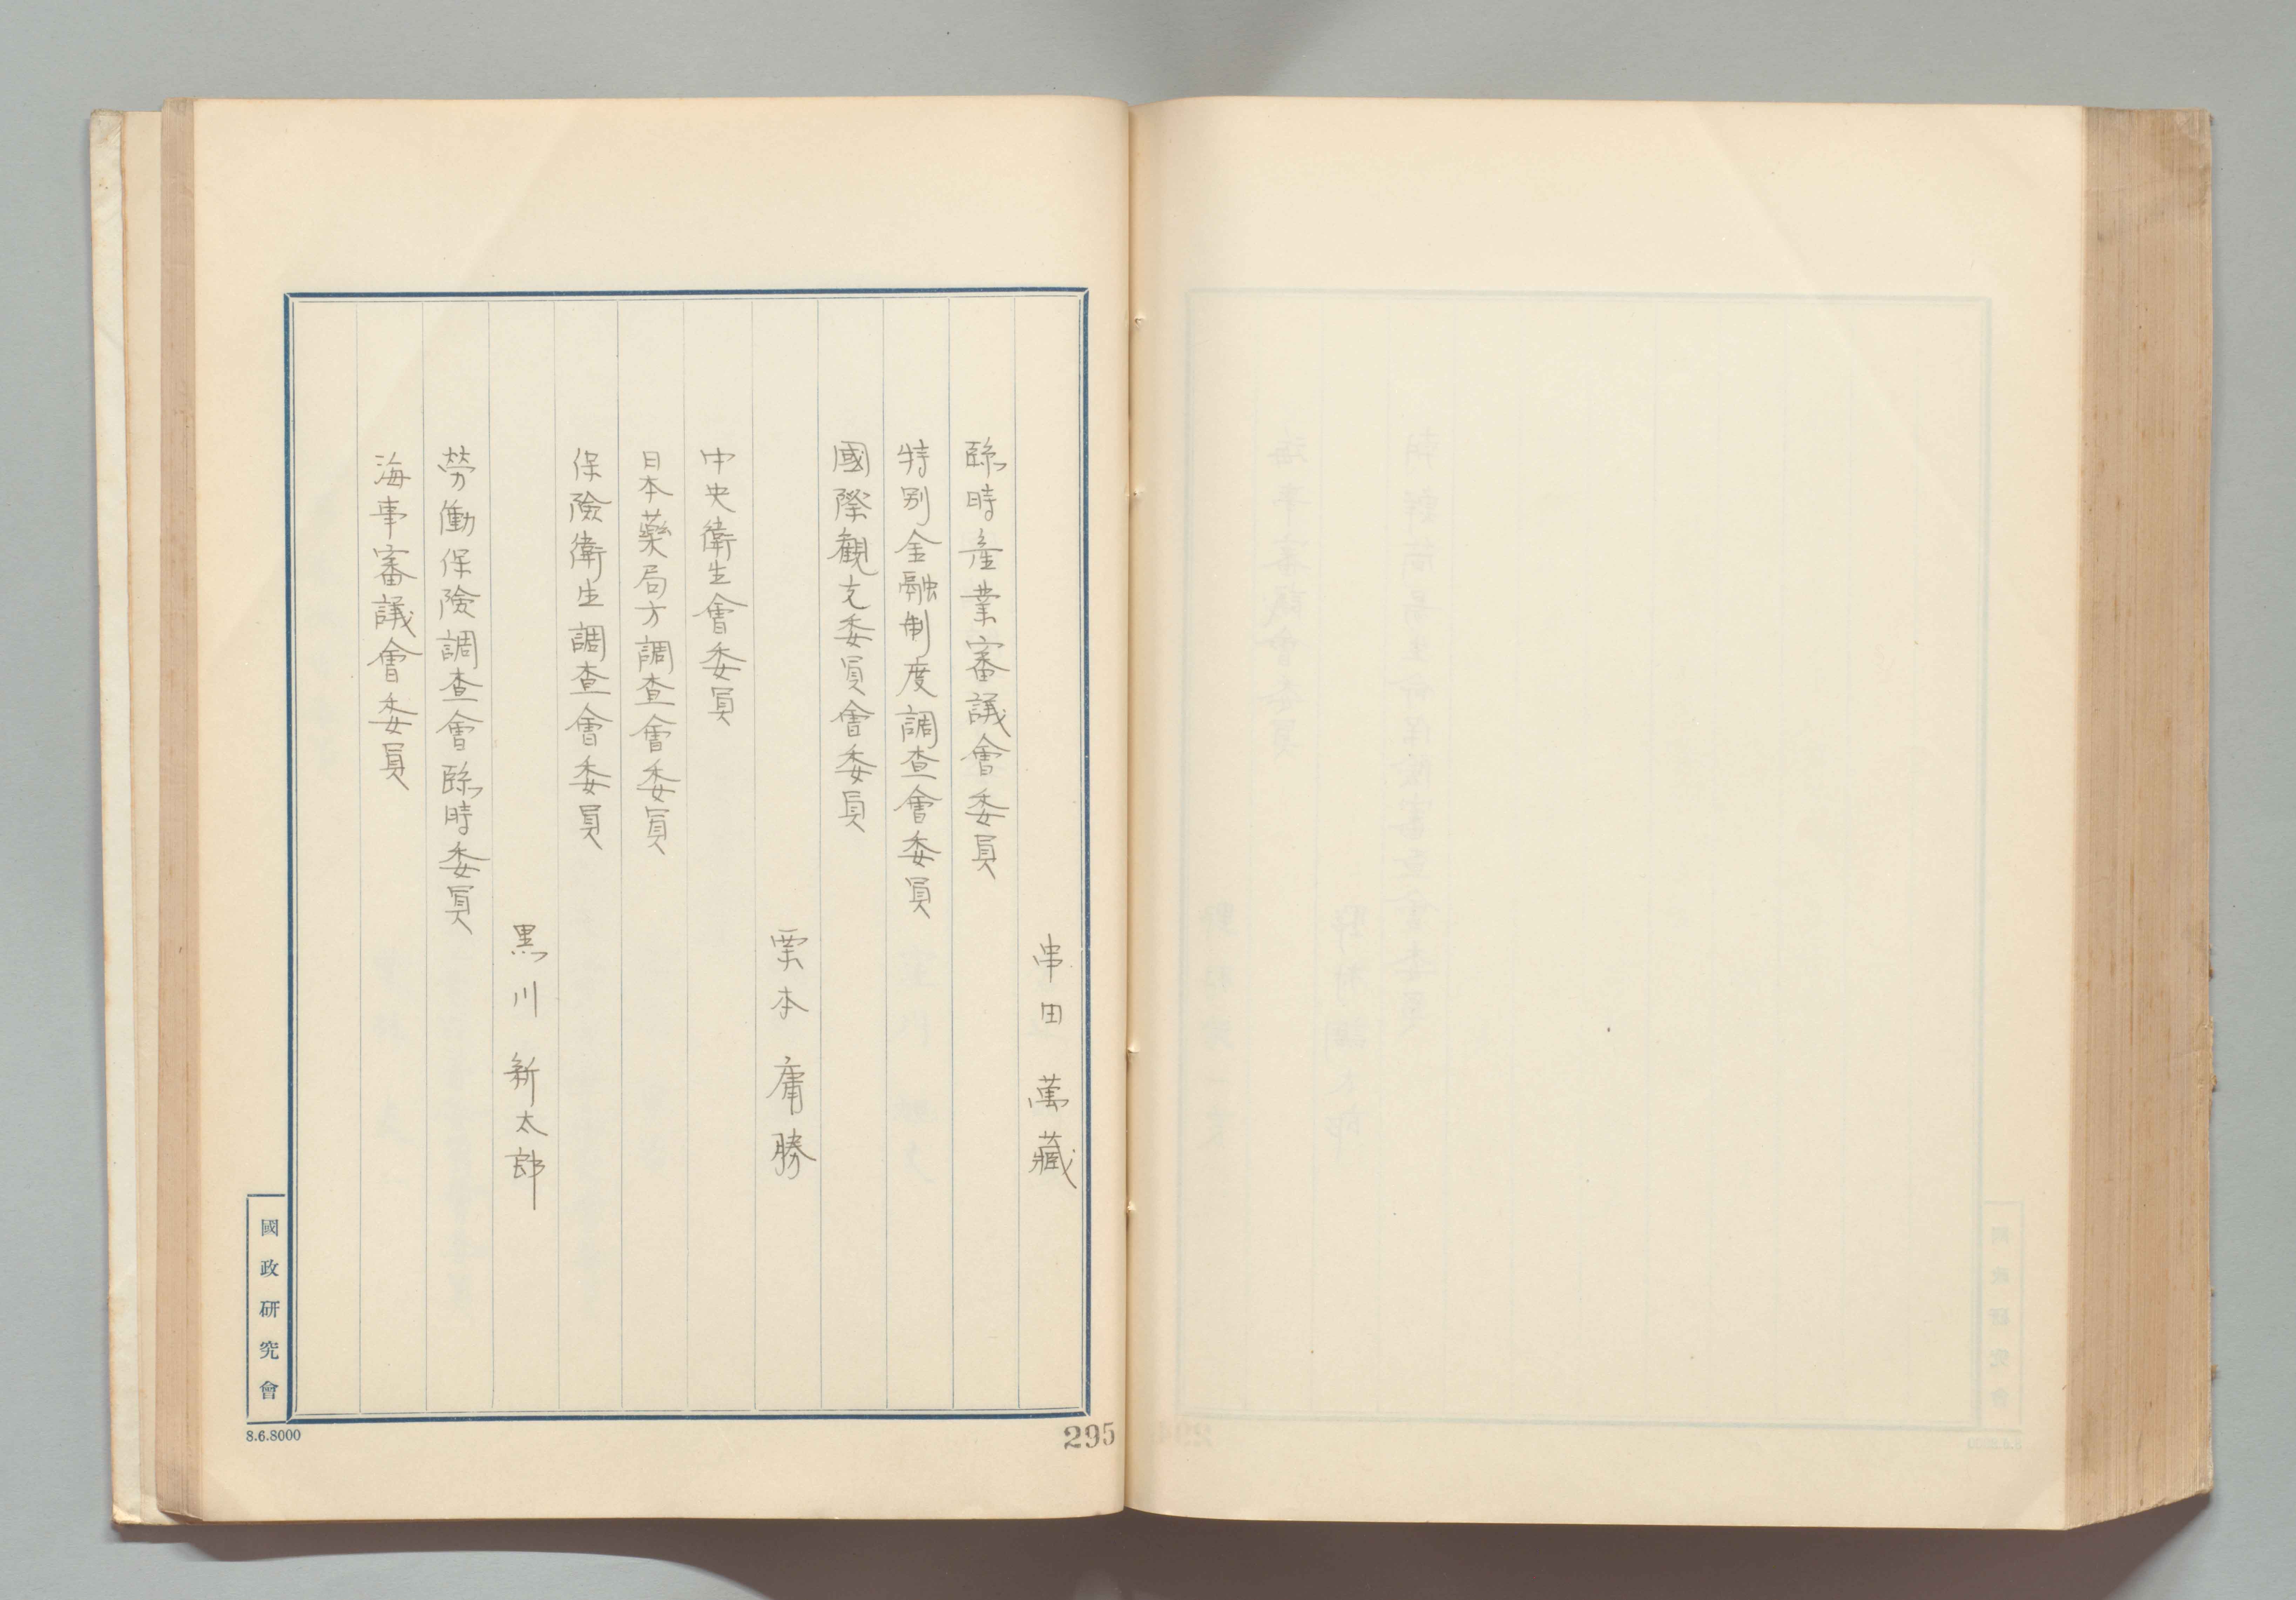 串田萬藏
臨時產業審議會委員
特別金融制度調查會委員
國際観光委員會委員
栗本庸勝
中央衛生會委員
日本藥局方調查會委員
保險衛生調查會委員
黒川新太郎
勞働保險調查會臨時委員
海事審議會委員
國政研究會
8.6.8000
295